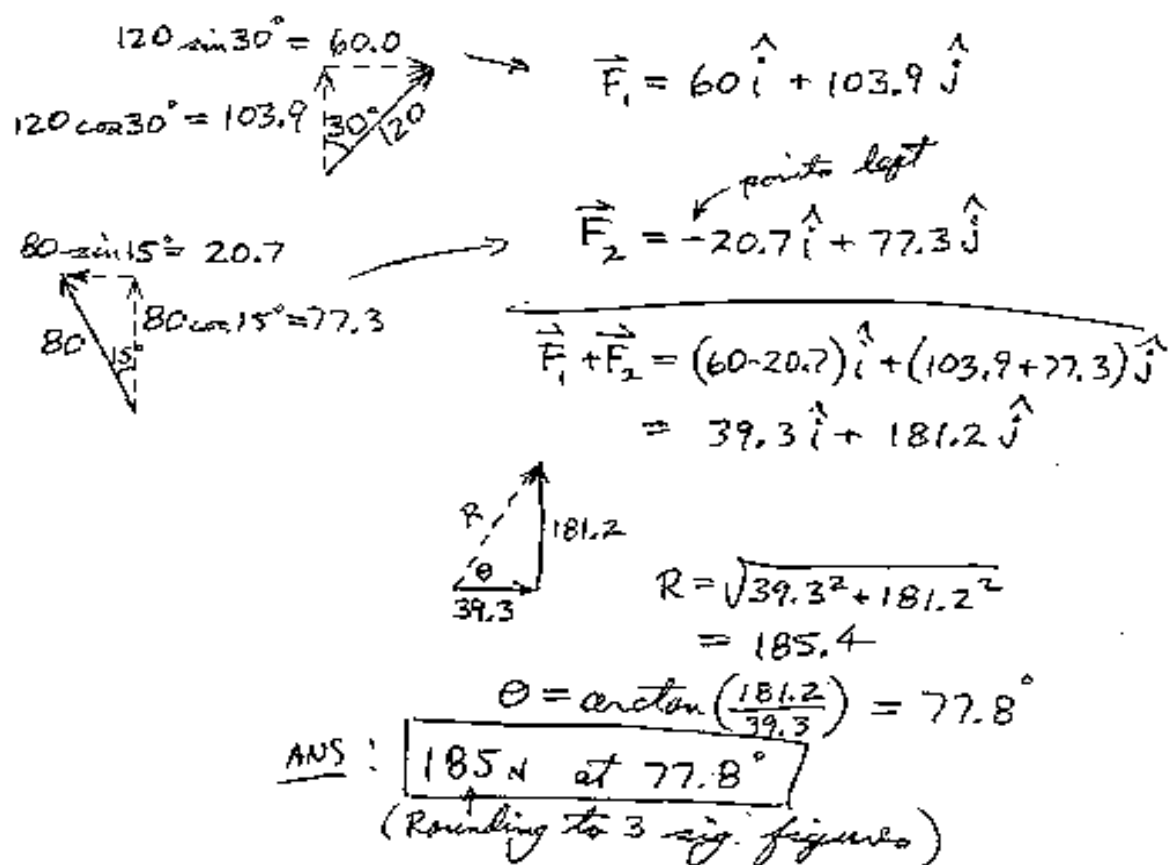 120 sin 30° = 60.0
120 cos 30° = 103.9
30°
120
→ F⃗₁ = 60 î + 103.9 ĵ
points left
80 sin 15° = 20.7
80 cos 15° = 77.3
80
15°
→ F⃗₂ = -20.7 î + 77.3 ĵ
F⃗₁ + F⃗₂ = (60-20.7) î + (103.9+77.3) ĵ
= 39.3 î + 181.2 ĵ
R
181.2
θ
39.3
R = √(39.3² + 181.2²)
= 185.4
θ = arctan (181.2/39.3) = 77.8°
ANS : 185 N at 77.8°
(Rounding to 3 sig. figures)